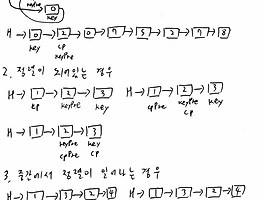 keyPre 0
key
H → 0 → 2 → 0 → 7 → 5 → 2 → 7 → 8
key cp
keyPre
2. 정렬이 되어있는 경우
H → 1 → 2 → 3 H → 1 → 2 → 3
cp keyPre key cpPre keyPre key
cp
H → 1 → 2 → 3
keyPre key
cpPre cp
3. 중간에서 정렬이 일어나는 경우
H → 1 → 3 → 2 → 4 H → 1 → 3 → 2 → 4